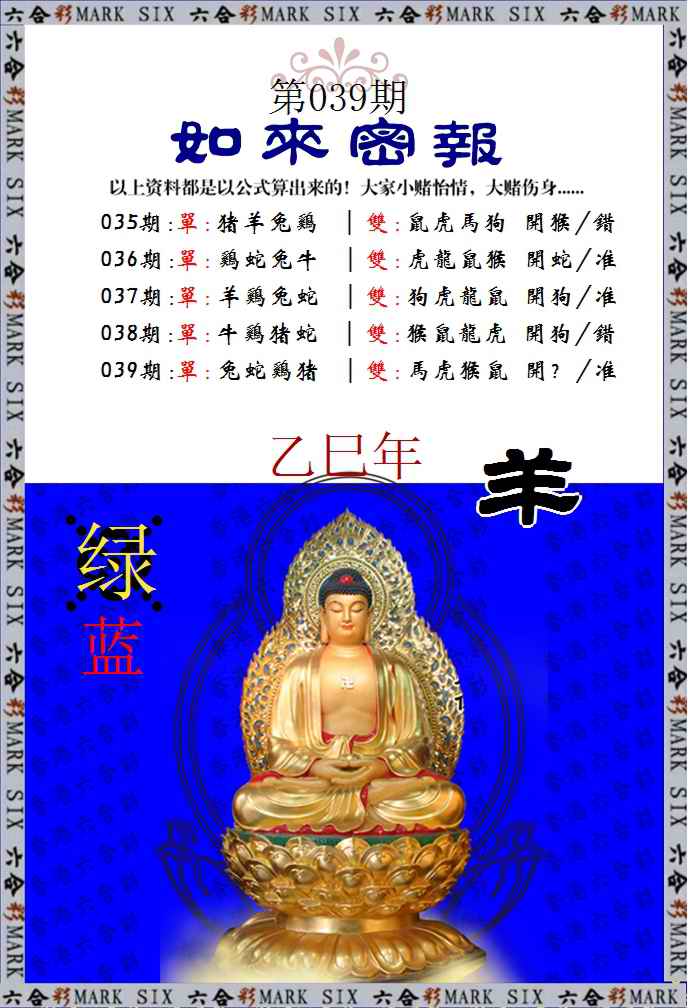 六合彩MARK SIX 六合彩MARK SIX 六合彩MARK SIX 六合彩MARK SIX 六合彩MARK SIX
第039期
如來密報
以上资料都是以公式算出来的！大家小赌怡情，大赌伤身......
035期:單:猪羊兔鷄 | 雙:鼠虎馬狗 開猴/錯
036期:單:鷄蛇兔牛 | 雙:虎龍鼠猴 開蛇/准
037期:單:羊鷄兔蛇 | 雙:狗虎龍鼠 開狗/准
038期:單:牛鷄猪蛇 | 雙:猴鼠龍虎 開狗/錯
039期:單:兔蛇鷄猪 | 雙:馬虎猴鼠 開?/准
乙巳年
羊
绿
蓝
六合彩MARK SIX 六合彩MARK SIX 六合彩MARK SIX 六合彩MARK SIX 六合彩MARK SIX